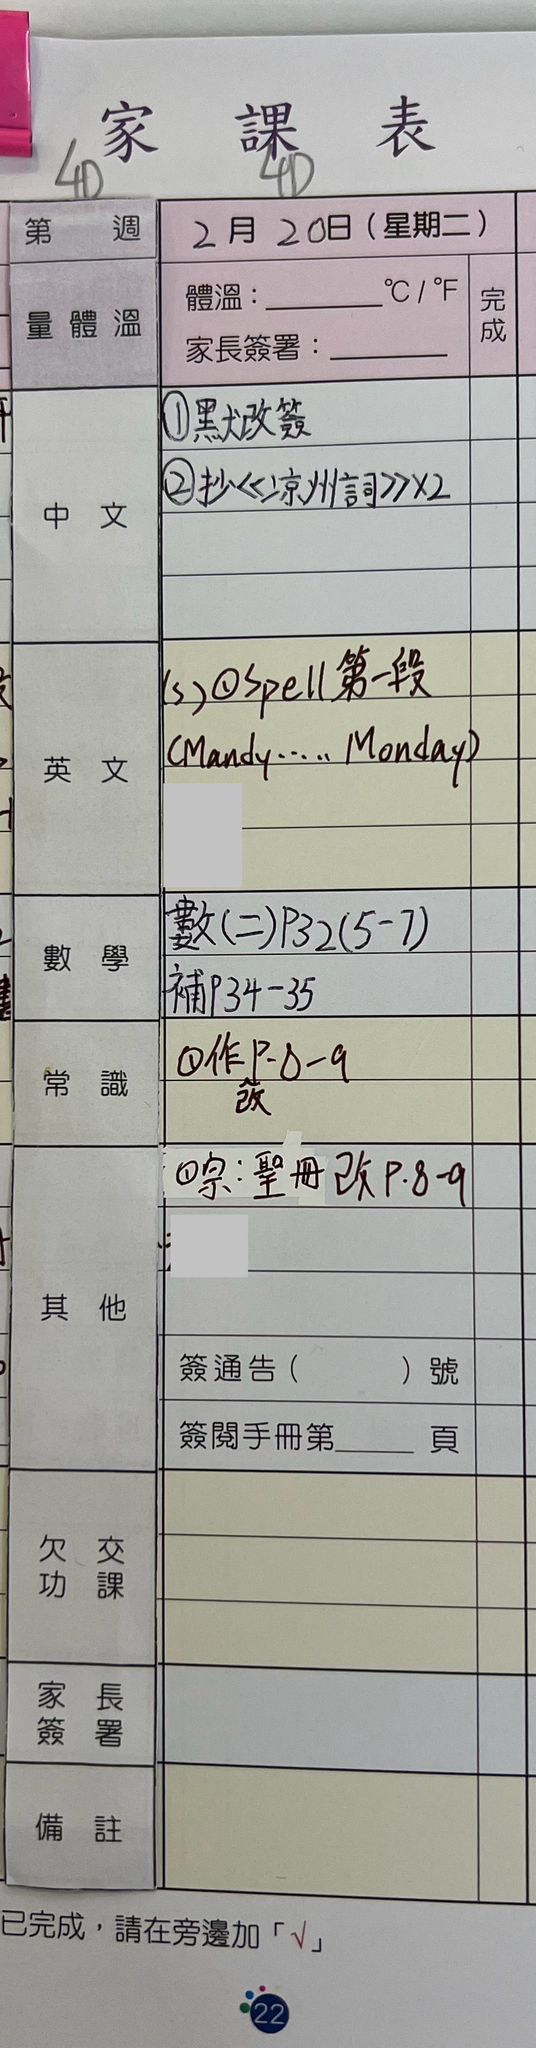 家課表
4D 4D
第 週 2月20日(星期二)
量體溫 體溫:______°C/°F 完成
家長簽署:______
中文 ①默改簽
②抄<<凉州詞>>x2
英文 (s)①Spell 第一段
(Mandy..... Monday)
數學 數(二)P32(5-7)
補P34-35
常識 ①作P.8-9
改
其他 ①宗:聖冊改P.8-9
簽通告( )號
簽閱手冊第____頁
欠交功課
家長簽署
備註
已完成,請在旁邊加「√」
22